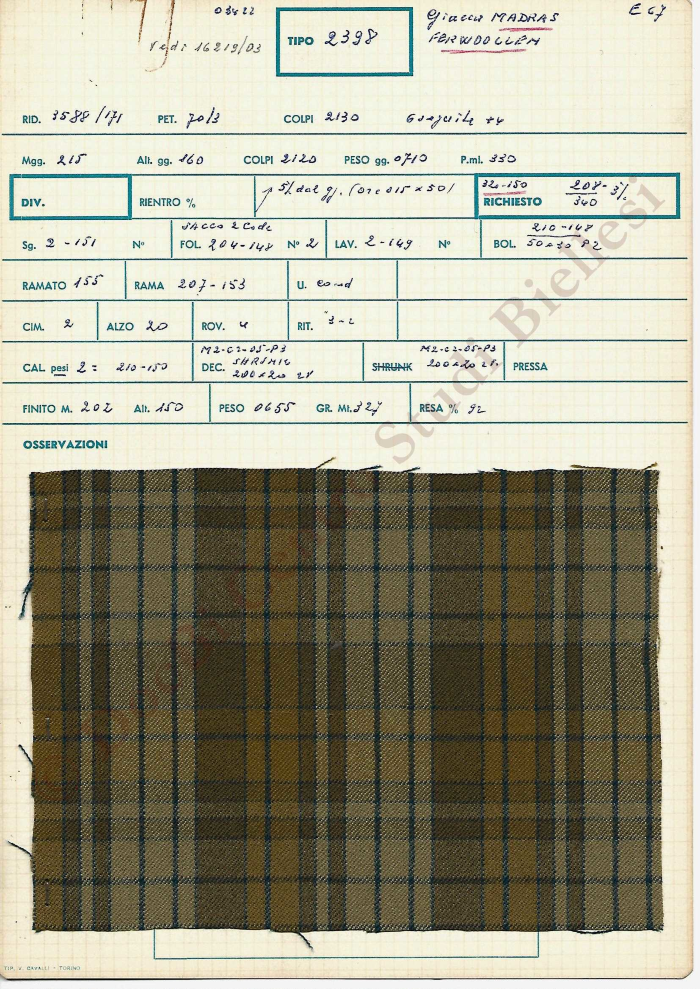 03422
Giacca MADRAS
E 67
Vedi 16219/03
TIPO 2398
FERWOOLLEN
RID. 3588/171 PET. 70/3 COLPI 2130
Mgg. 215 Alt. gg. 160 COLPI 2120 PESO gg. 0710 P.ml. 330
DIV.
RIENTRO %
p 5% dal gg. (ore 015 x 50)
320-150
RICHIESTO
208-3%
340
Sg. 2-151 N°
SACCO 2 Code
FOL. 204-148 N° 2
LAV. 2-149 N°
BOL.
210-148
50x30 P2
RAMATO 155
RAMA 207-153
U.
CIM. 2
ALZO 20
ROV. 4
RIT. 3-2
CAL. pesi 2 = 210-150
M2-C2-05-P3
DEC.
200x20
SHRUNK
M2-C2-05-P3
200x20
PRESSA
FINITO M. 202 Alt. 150 PESO 0655 GR. Mt. 327 RESA % 92
OSSERVAZIONI
Centro Studi Biellesi
TIP. V. CAVALLI - TORINO